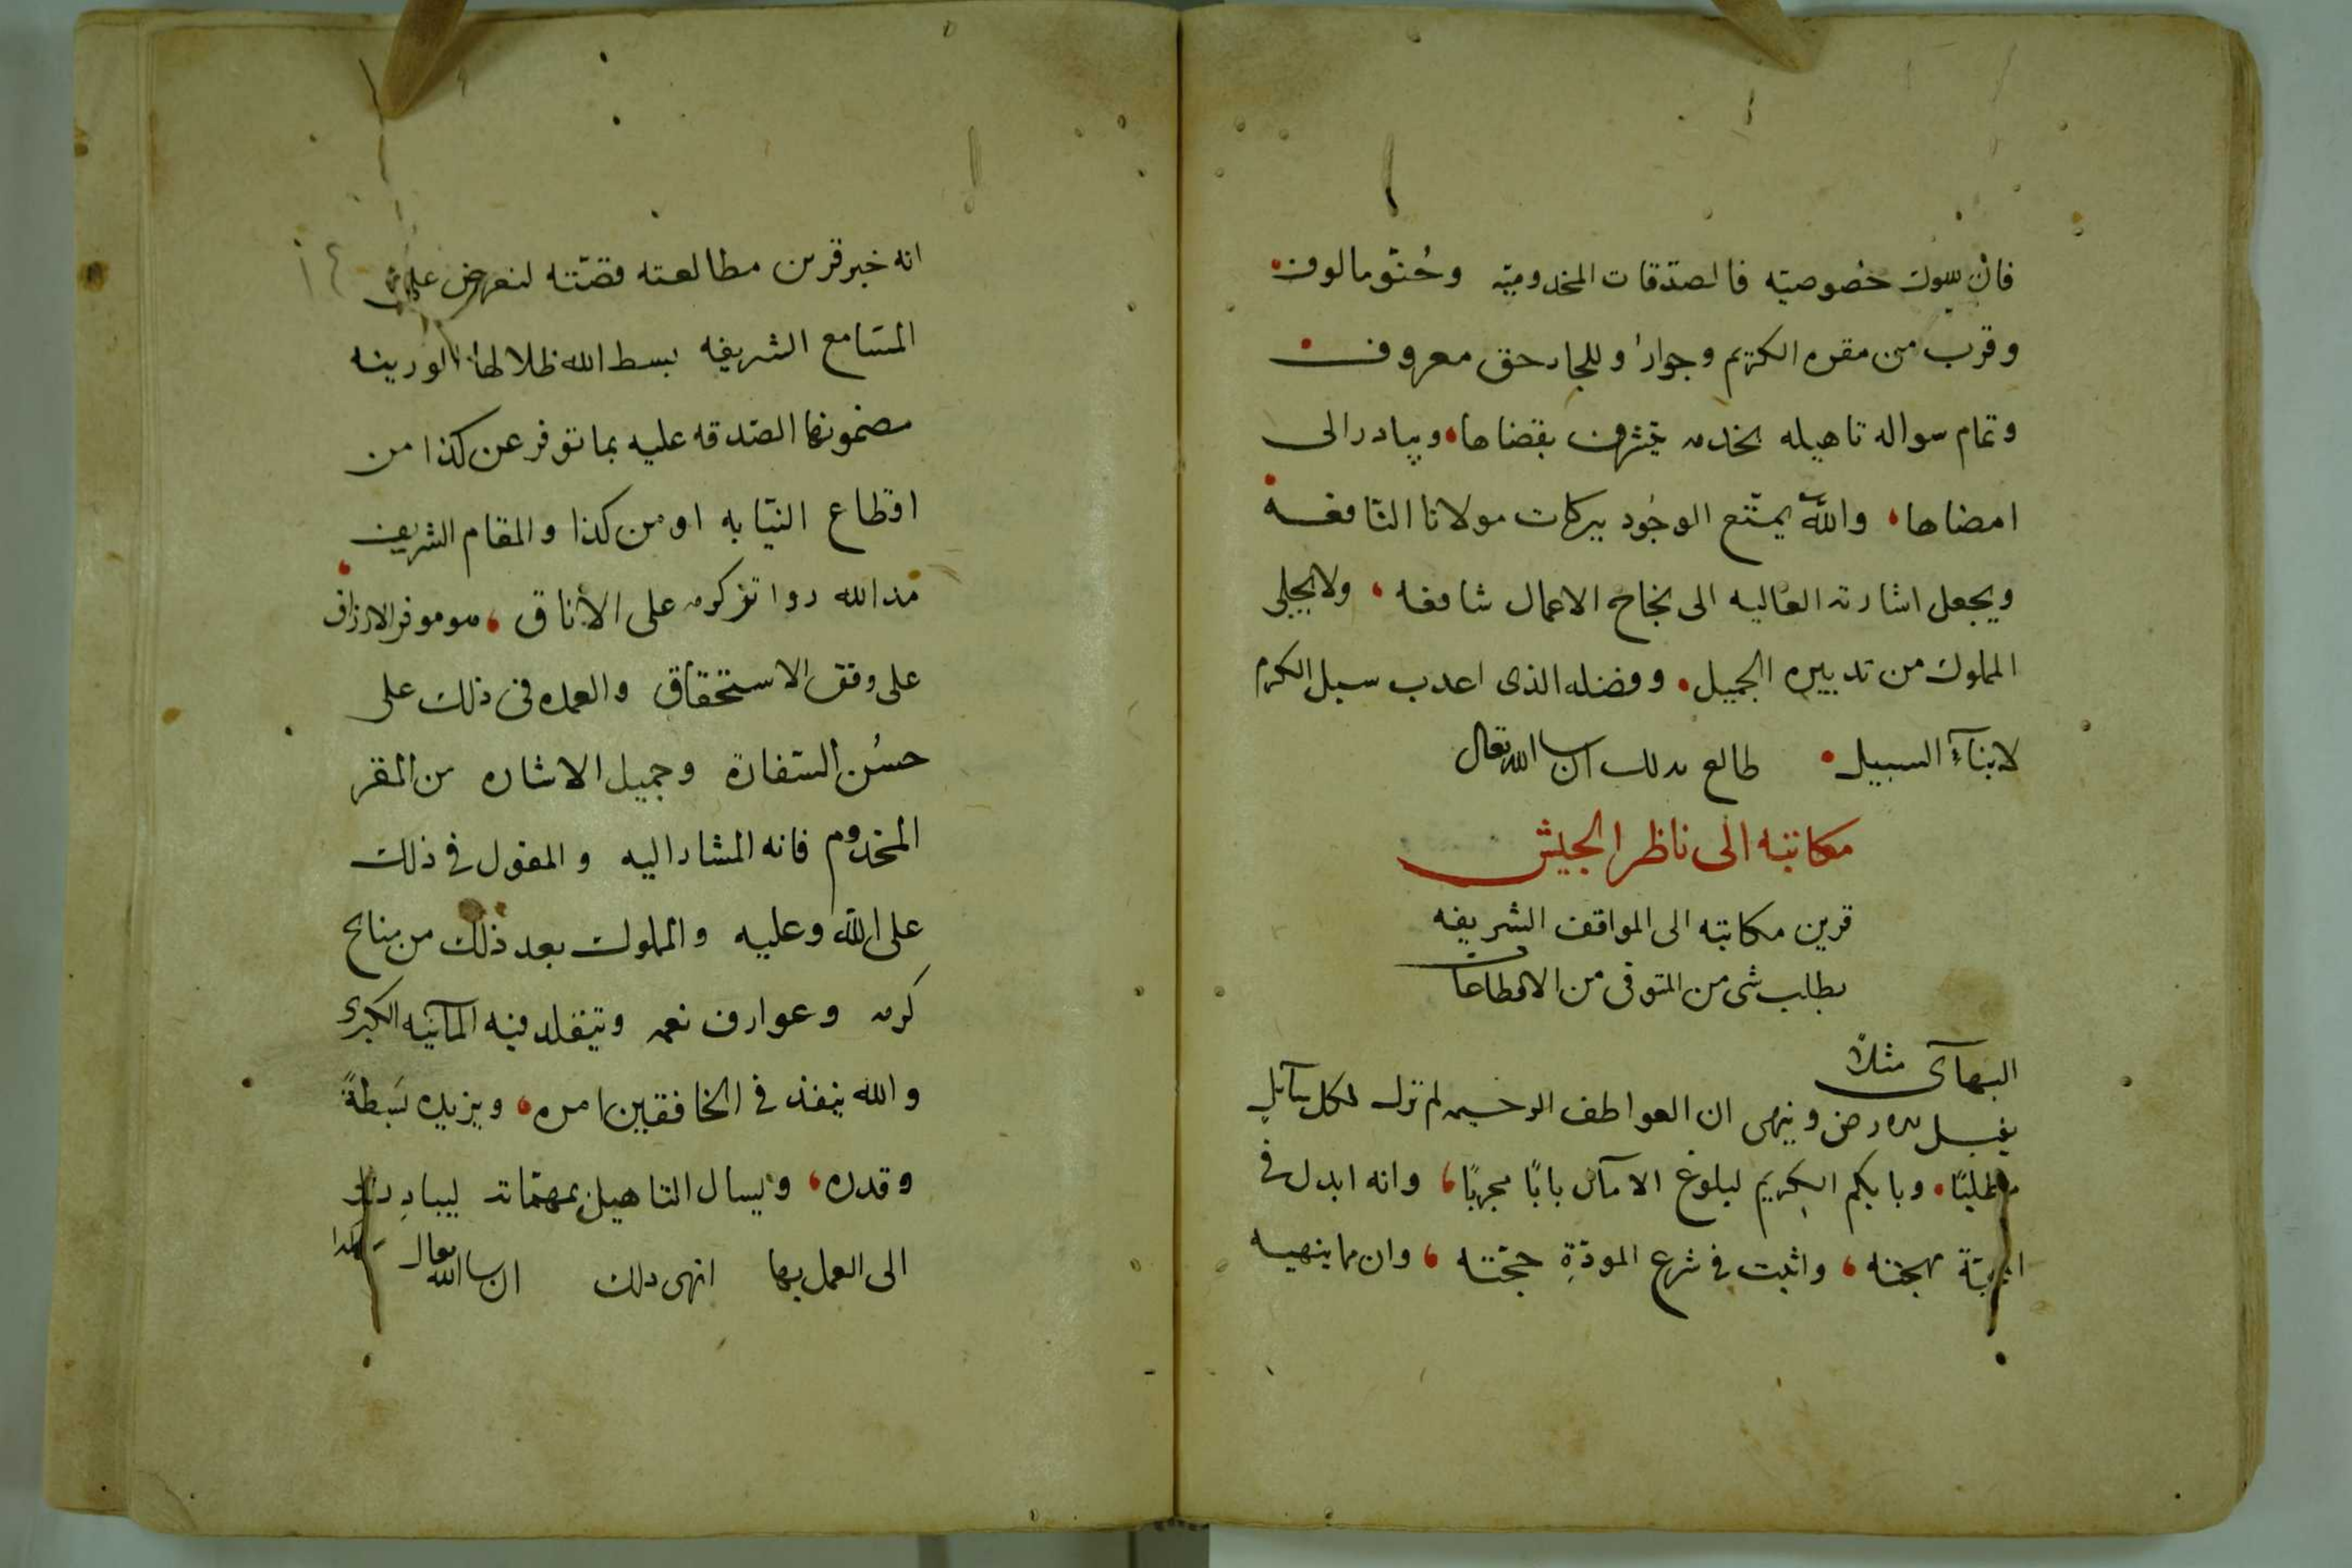 فان خصوصيته فالصدقات المخدوميه وحنو مالوف
وقرب من مقره الكريم وجوار وللجار حق معروف
وتمام سواله تاهيله لخدمه يتشرف بقضاها وببادر الى
امضاها والله يمتع الوجود ببركات مولانا النافعه
ويجعل اشارته العاليه الى نجاح الاعمال شافعه ولا يخلى
المملوك من تدبيره الجميل وفضله الذى اعدب سبل الكرم
لابنآء السبيل طالع بدلك ان سا الله تعالى
مكاتبه الى ناظر الجيش
قرين مكاتبه الى المواقف الشريفه
بطلب شى من المتوفى من الاقطاعات
البهآى مثلاً
يقبل وينهى ان العواطف الرحيمه لم تزل لكل
مطلبًا وبابكم الكريم لبلوغ الامآل بابًا مجربًا وانه ابدل فى
مهجته واثبت فى شرع المودّةِ حجّته وان مما ينهيه
انه خبر قرين مطالعته قصّته لتعرض على
المسامع الشريفه بسط الله ظلالها الوريفه
مضمونها الصدقه عليه بما توفر عن كذا من
اقطاع النيابه او من كذا والمقام الشريف
مد الله رواق كرمه على الأفاق هو موفر الارزاق
على وفق الاستحقاق والعمده فى ذلك على
حسُن السفارة وجميل الاشاره من المقر
المخدوم فانه المشار اليه والمعول فى ذلك
على الله وعليه والمملوك بعد ذلك من منايح
كرمه وعوارف نعمه ويتقلد فيه الكبرى
والله ينفذ فى الخافقين امره ويزيده بَسطةً
وقدره ويسال التاهيل بمهمّاته ليبادر
الى العمل بها انهى دلك ان سا الله تعالى